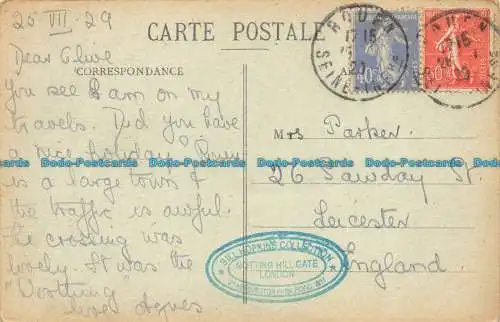 25 VII · 29
CARTE POSTALE
Dear Olive
CORRESPONDANCE
you see I am on my
travels. Did you have
a nice holiday? Rouen
is a large town &
the traffic is awful.
the crossing was
lovely. It was the
"Worthing"
love Agnes
ROUEN
SEINE
Mrs Parker.
26 Sawday St.
Leicester
England.
BILL HOPKINS COLLECTION
NOTTING HILL GATE
LONDON
Dodo-Postcards Dodo-Postcards Dodo-Postcards Dodo-Postcards